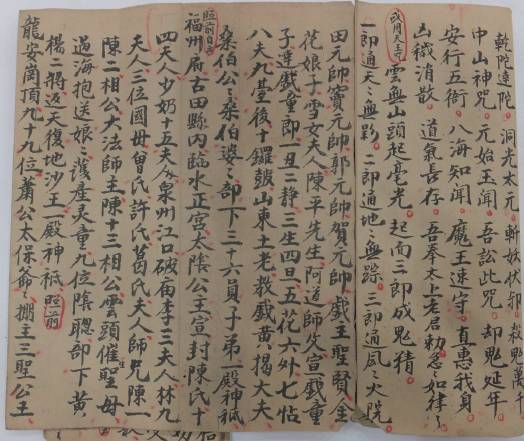 乾陀達陀　洞光太元　斬妖伏邪　殺鬼萬千
中山神咒　元始玉聞　吾訟此咒　却鬼延年
安行五衙　八海知聞　魔王速守　直惠我身
凶穢消散　道氣長存　吾奉太上老君勅急如律〻
咸用天王咒 雲無山頭起毫光　起面三郎成鬼精
一郎通天〻無影　二郎通地〻無踪　三郎通風〻火院
田元帥竇元帥郭元帥賀元帥戯王聖賢金
花娘子雪女夫人陳平先生阿道師父宣戯童
子達戯童郎一丑二静三生四旦五花六外七帖
八夫九基後十鑼皷山東土老教戯黄〻揭大夫
桑伯公〻桑伯婆〻部下三十六員子弟一殿神祇
照前白
福州府古田縣內臨水正宮太陰公主宣封陳氏十
四夫人少奶十五夫人泉州江口破庙李三夫人林九
夫人三位國母曾氏許氏葛氏夫人師兄陳一
陳二相公大法師主陳十三相公雲頭催聖母
過海抱送娘〻護產灵童九位陰聰部下黄
楊二將返天復地沙王一殿神祇 照前
龍安崗頂九十九位蕭公太保爺〻棚主三聖公主